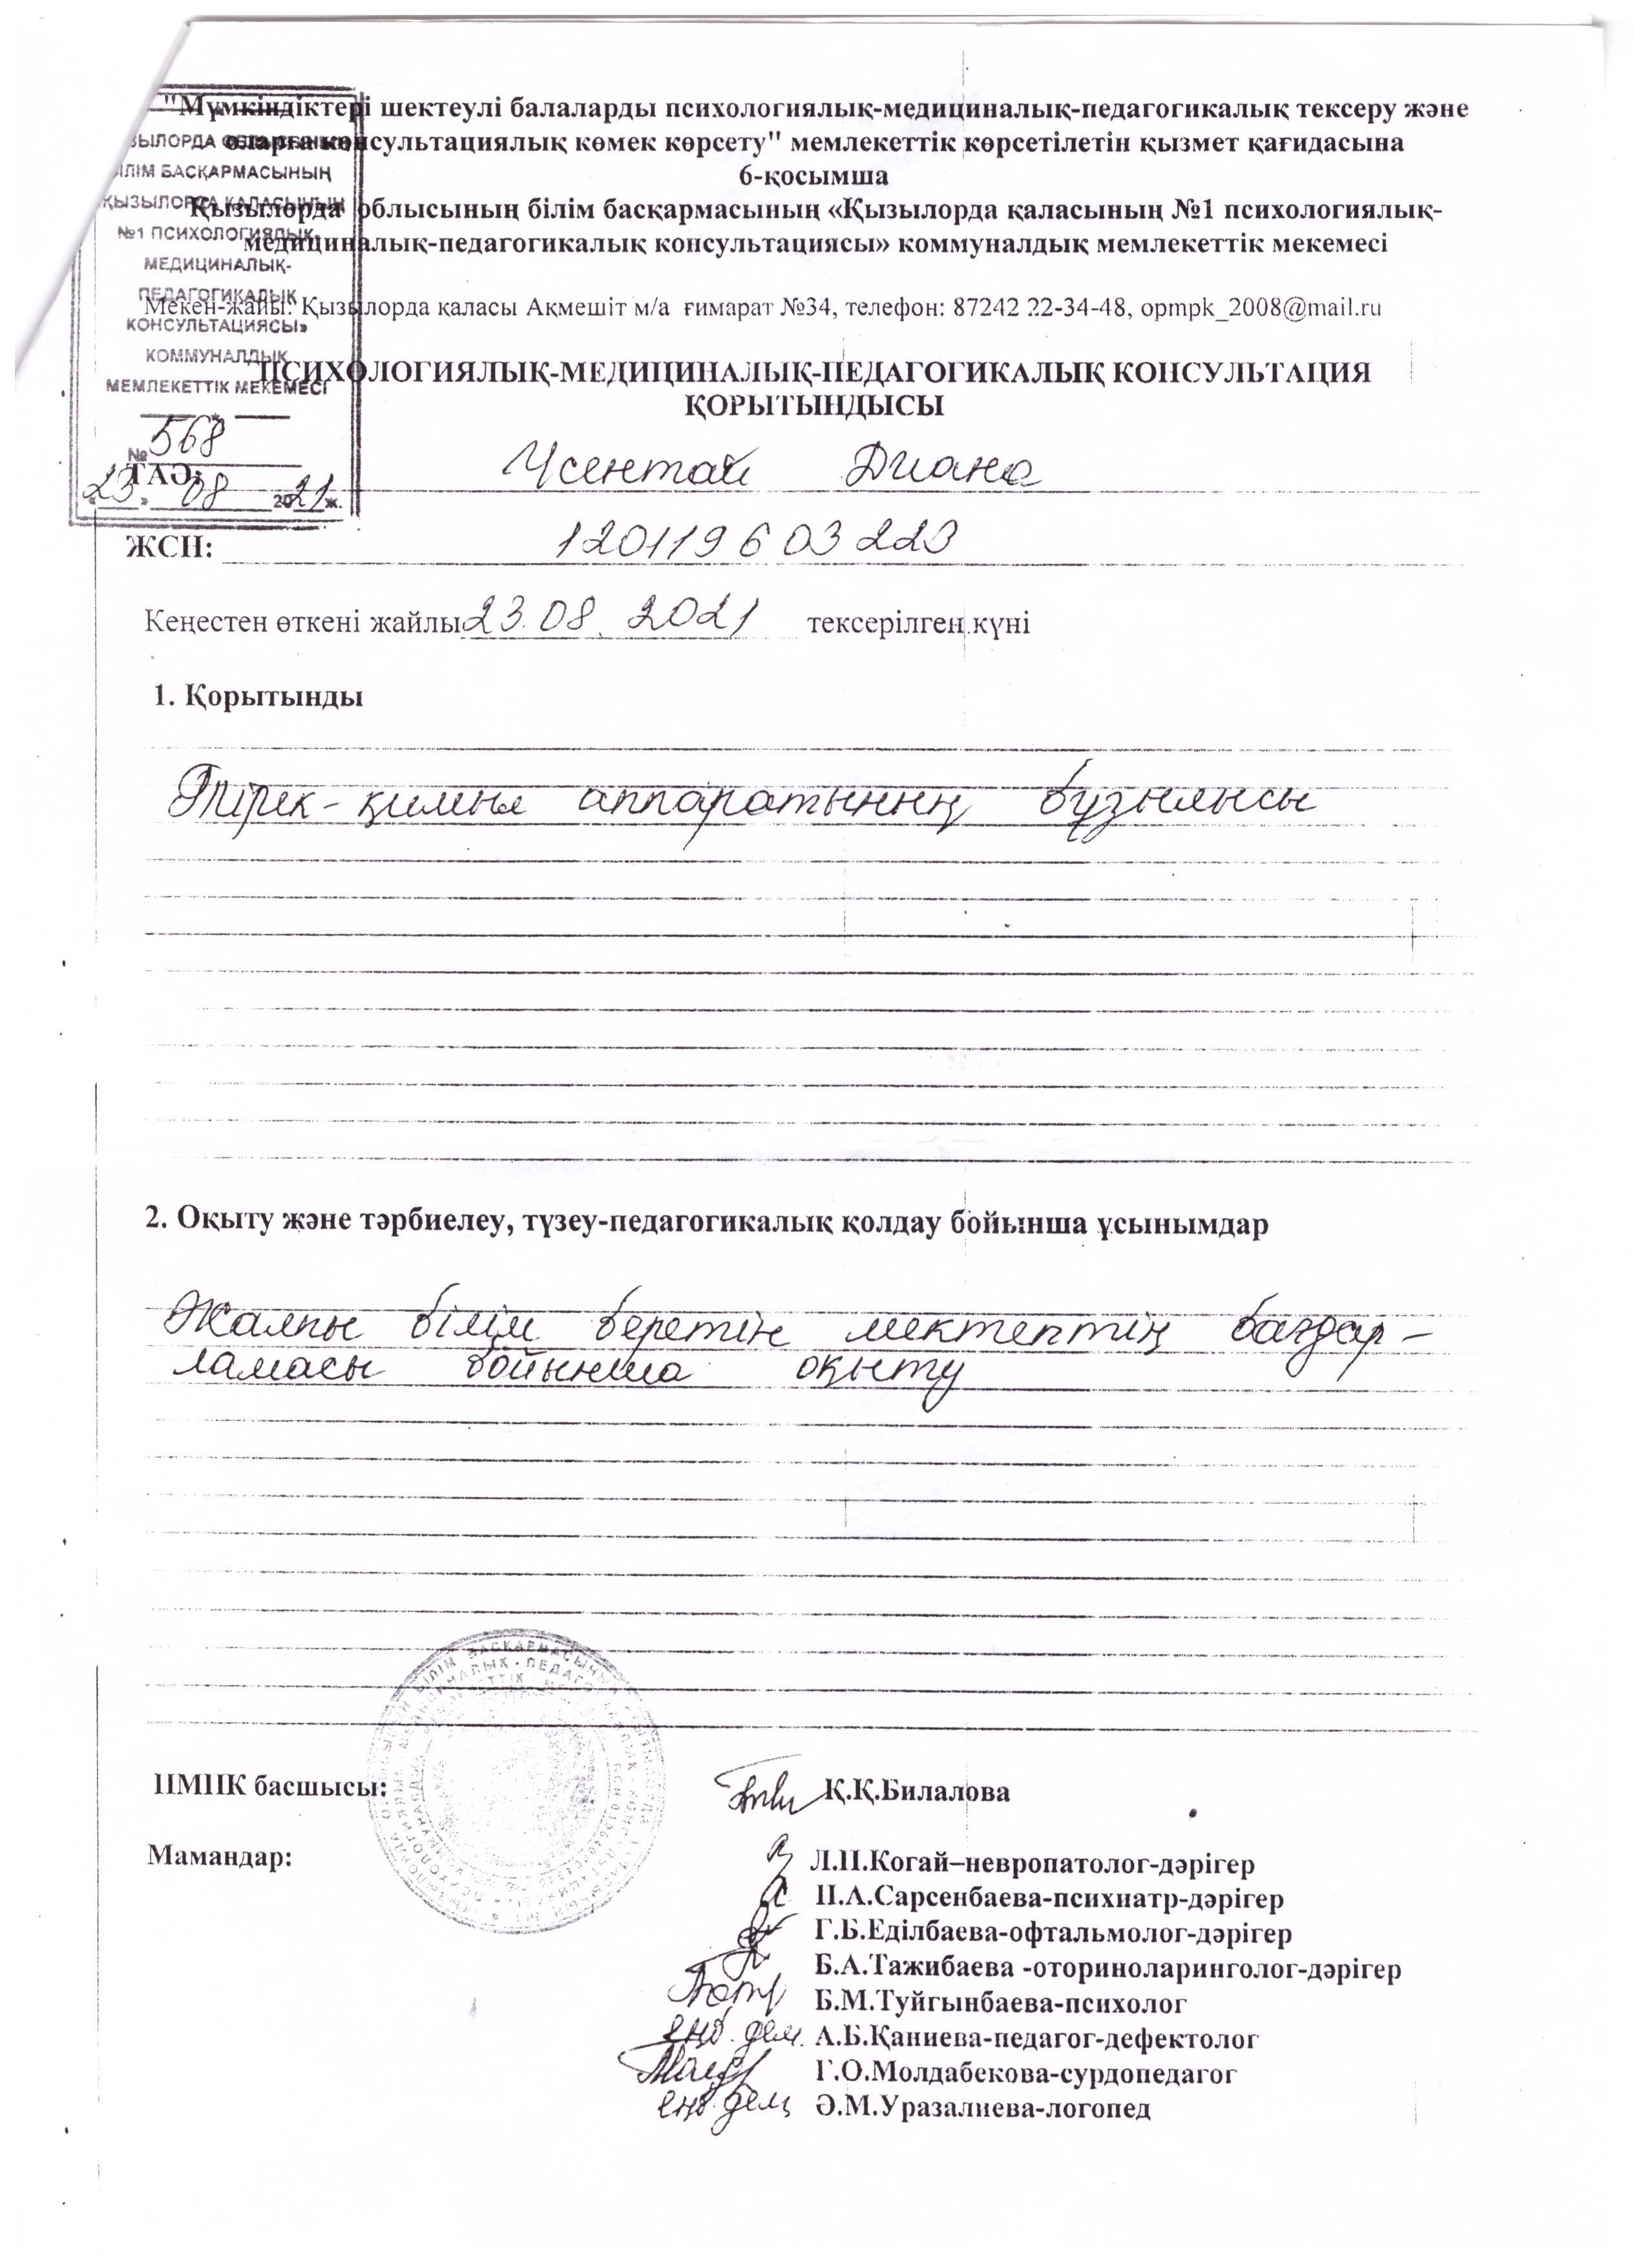 "Мүмкіндіктері шектеулі балаларды психологиялық-медициналық-педагогикалық тексеру және
оларға консультациялық көмек көрсету" мемлекеттік көрсетілетін қызмет қағидасына
6-қосымша
Қызылорда облысының білім басқармасының «Қызылорда қаласының №1 психологиялық-
медициналық-педагогикалық консультациясы» коммуналдық мемлекеттік мекемесі
БІЛІМ БАСҚАРМАСЫНЫҢ
ҚЫЗЫЛОРДА ҚАЛАСЫНЫҢ
№1 ПСИХОЛОГИЯЛЫҚ-
МЕДИЦИНАЛЫҚ-
ПЕДАГОГИКАЛЫҚ
КОНСУЛЬТАЦИЯСЫ»
КОММУНАЛДЫҚ
МЕМЛЕКЕТТІК МЕКЕМЕСІ
№ 568
«23» 08 2021 ж.
Мекен-жайы: Қызылорда қаласы Ақмешіт м/а ғимарат №34, телефон: 87242 22-34-48, opmpk_2008@mail.ru
ПСИХОЛОГИЯЛЫҚ-МЕДИЦИНАЛЫҚ-ПЕДАГОГИКАЛЫҚ КОНСУЛЬТАЦИЯ
ҚОРЫТЫНДЫСЫ
ТАӘ: Үсентай Диана
ЖСН: 120119603223
Кеңестен өткені жайлы 23.08.2021 тексерілген күні
1. Қорытынды
Тірек-қимыл аппаратының бұзылысы
2. Оқыту және тәрбиелеу, түзеу-педагогикалық қолдау бойынша ұсынымдар
Жалпы білім беретін мектептің бағдар-
ламасы бойынша оқыту
ПМПК басшысы: Қ.Қ.Билалова
Мамандар:
Л.П.Когай–невропатолог-дәрігер
П.А.Сарсенбаева-психиатр-дәрігер
Г.Б.Еділбаева-офтальмолог-дәрігер
Б.А.Тажибаева -оториноларинголог-дәрігер
Б.М.Туйгынбаева-психолог
еңб. дем. А.Б.Қаниева-педагог-дефектолог
Г.О.Молдабекова-сурдопедагог
еңб. дем. Ә.М.Уразалиева-логопед